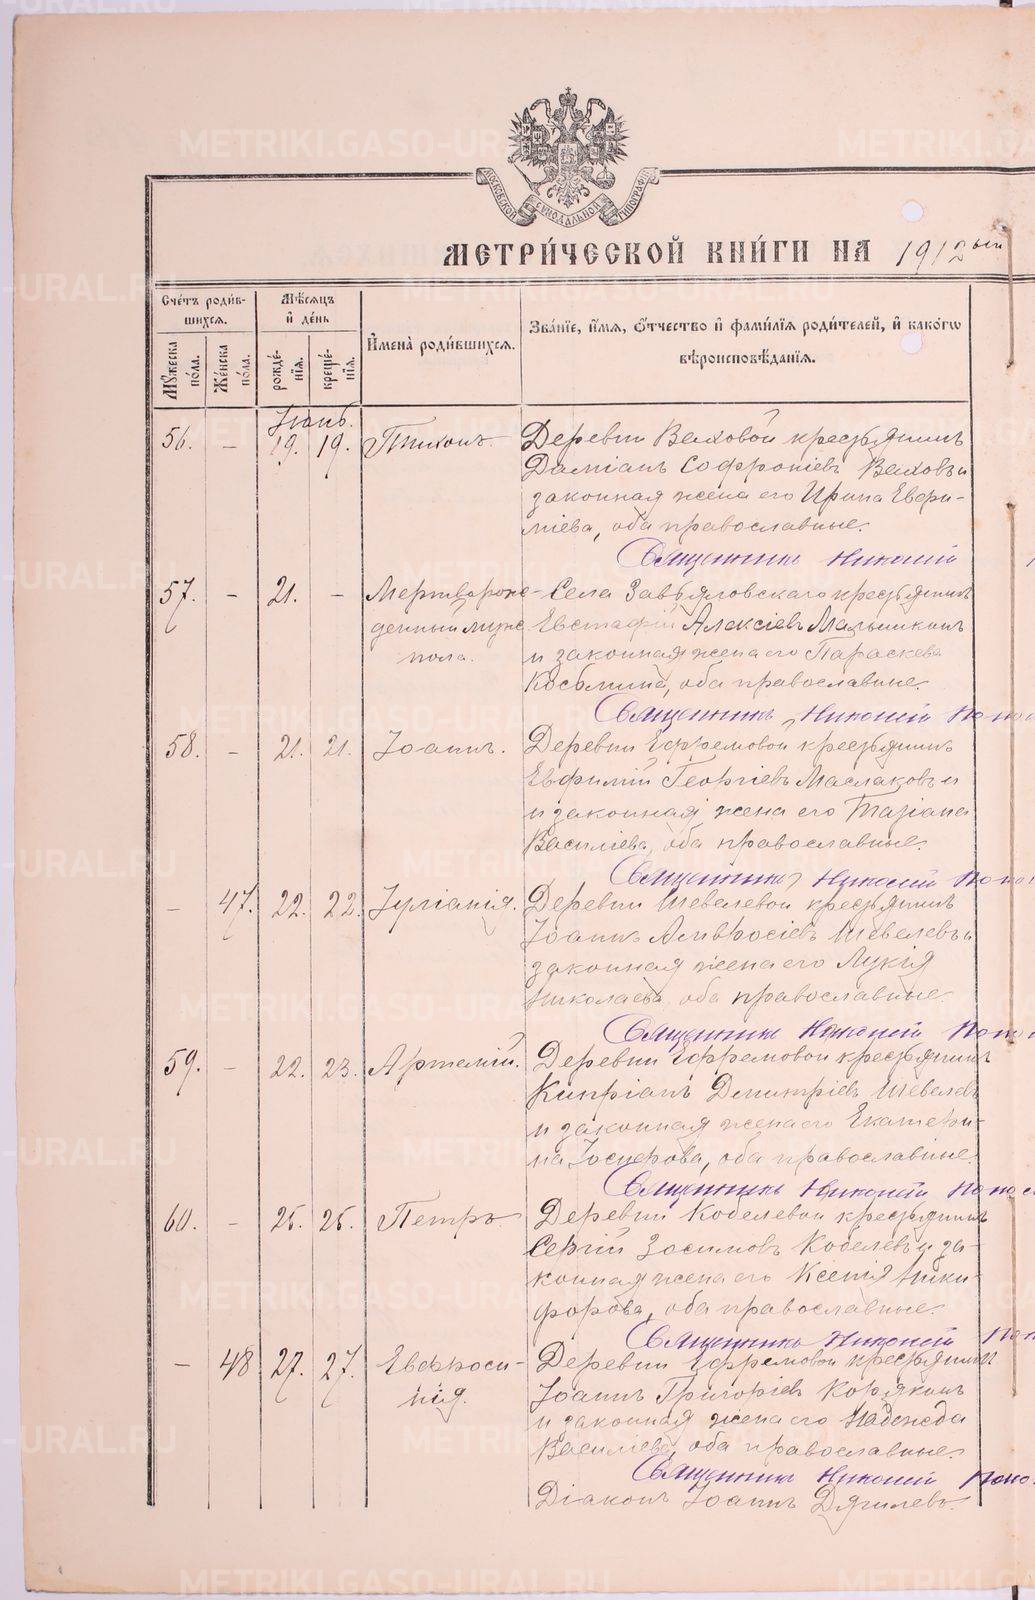 МОСКОВСКОЙ СѴНОДАЛЬНОЙ ТИПОГРАФІИ
МЕТРИ́ЧЕСКОЙ КНИ́ГИ НА 1912 ый
Сче́тъ роди́в-
шихся.
Мѣ́сяцъ
и де́нь
Имена̀ роди́вшихся.
Зва́нїе, и́мя, о́тчество и фами́лїя роди́телей, и како́гѡ
вѣроисповѣ́данїя.
Мꙋ́жеска
по́ла.
Же́нска
по́ла.
рожде́-
нїя.
креще́-
нїя.
Іюнь.
56. – 19. 19. Тихонъ. Деревни Валовой крестьянинъ
Даміанъ Софроніевъ Валовъ и
законная жена его Ирина Евфи-
міева, оба православные.
Священникъ Николай
57. – 21. – Мертворож- Села Завьяловскаго крестьянинъ
денный муж. Евстафій Алексіевъ Малышкинъ
пола. и законная жена его Параскева
Космина, оба православные.
Священникъ Николай Попов
58. – 21. 21. Іоаннъ. Деревни Ефремовой крестьянинъ
Евфимій Георгіевъ Маслаковъ и
и законная жена его Татіана
Василіева, оба православные.
Священникъ Николай Попо
– 47. 22. 22. Іуліанія. Деревни Шевелевой крестьянинъ
Іоаннъ Амвросіевъ Шевелевъ и
законная жена его Лукія
Николаева, оба православные.
Священникъ Николай Попо
59. – 22. 23. Артемій. Деревни Ефремовой крестьянинъ
Кипріанъ Димитріевъ Шевелевъ
и законная жена его Екатери-
на Іосифова, оба православные.
Священникъ Николай Попо
60. – 25. 26. Петръ. Деревни Кобелевой крестьянинъ
Сергій Зосимовъ Кобелевъ и за-
конная жена его Ксенія Ники-
форова, оба православные.
Священникъ Николай Поп
– 48 27. 27. Евфроси- Деревни Ефремовой крестьянинъ
нія. Іоаннъ Григоріевъ Корякинъ
и законная жена его Надежда
Василіева, оба православные.
Священникъ Николай Попо
Діаконъ Іоаннъ Дягилевъ.
METRIKI.GASO-URAL.RU